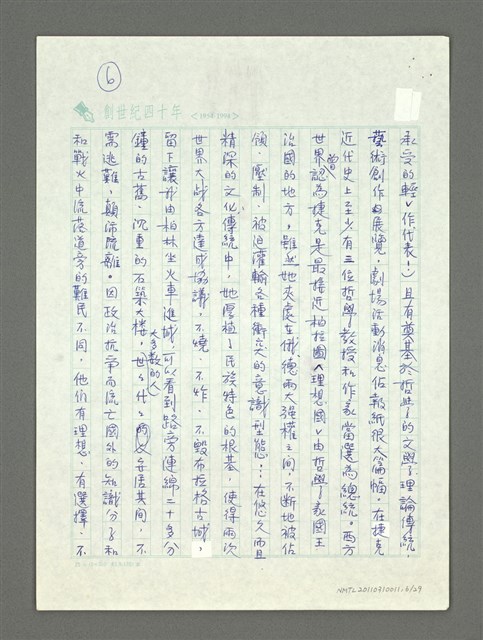 6
創世紀四十年 <1954-1994>
承受的輕∨作代表!)且有奠基於哲學的文學理論傳統,
藝術創作的展覽,劇場活動消息佔報紙很大篇幅。在捷克
近代史上至少有三位哲學教授和作家當選為總統。西方
世界曾認為捷克是最接近柏拉圖∧理想國∨由哲學家國王
治國的地方,雖然她夾處在俄、德兩大強權之間,不斷地被佔
領、壓制、被迫灌輸各種衝突的意識型態…在悠久而且
精深的文化傳統中,她厚植了民族特色的根基,使得兩次
世界大戰各方達成協議,不燒、不炸、不毀布拉格古城,
留下讓我由柏林坐火車進城,可以看到路旁連綿二十多分
鐘的古舊、沉重的石築大樓,世世代代大多數的人安居其間,不
需逃難、顛沛流離。因政治抗爭而流亡國外的知識分子和
和戰火中流落道旁的難民不同,他們有理想、有選擇、不
NMTL20110310011.6/29